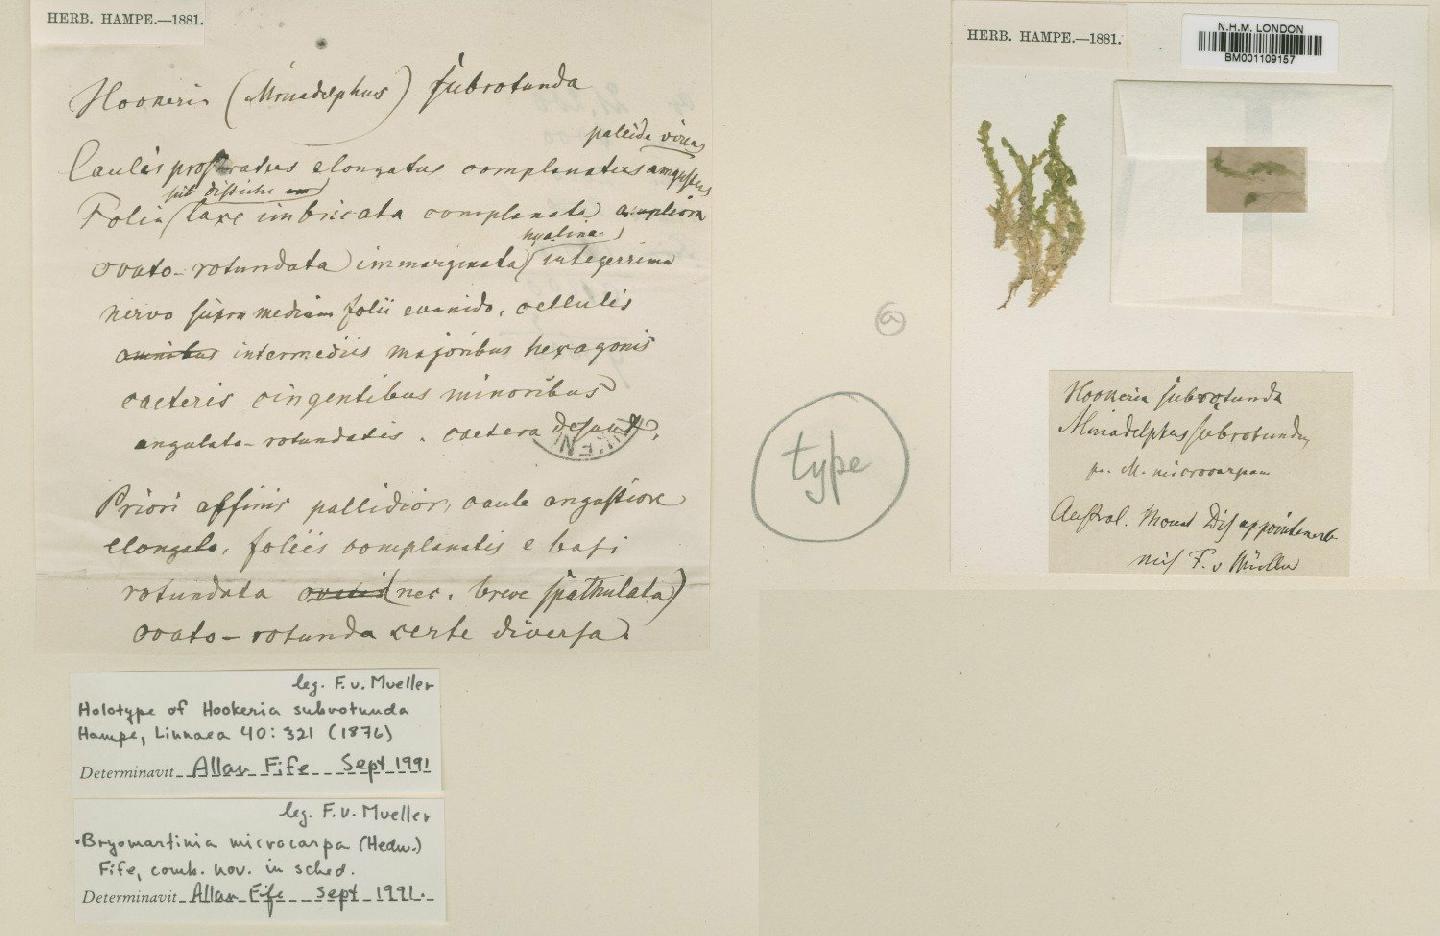 HERB. HAMPE.—1881.
Hookeria (Mniadelphus) subrotunda
pallide virens
Caulis prostratus elongatus complanatus angustus
sub disticha
Folia laxe imbricata complanata ampliora
hyalina
ovato-rotundata immarginata integerrima
nervo supra medium folii evanido, cellulis
omnibus intermediis majoribus hexagonis
caeteris cingentibus minoribus
angulato-rotundatis. caetera desunt.
Priori affinis pallidior, caule angustiore
elongato, foliis complanatis e basi
rotundata (nec. breve spathulata)
ovato-rotunda certe diversa.
leg. F. v. Mueller
Holotype of Hookeria subrotunda
Hampe, Linnaea 40: 321 (1876)
Determinavit Allan Fife Sept 1991
leg. F. v. Mueller
Bryomartinia microcarpa (Hedw.)
Fife, comb. nov. in sched.
Determinavit Allan Fife Sept 1991.
a
type
HERB. HAMPE.—1881.
N.H.M. LONDON
BM001109157
Hookeria subrotunda
Mniadelphus subrotundus
M. microcarpus
Austral. Mount Disappointment
mis F. v Müller